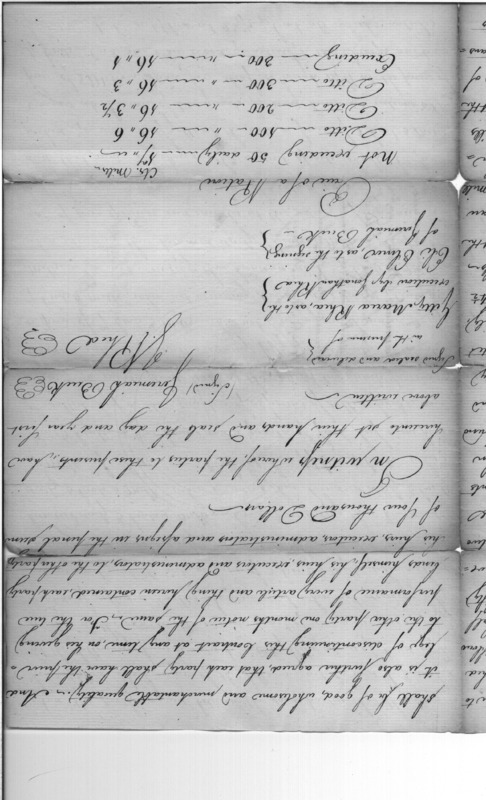 shall be of good, wholesome and merchantable quality. And
it is also further agreed, that each party shall have the privi=
=lege of discontinuing this Contract at any time, on his giving
to the other party one months notice of the same. For the true
performance of every article and thing herein contained, each party
binds himself, his heirs, executors and administrators, to the other party
his heirs, executors, administrators and assigns in the penal sum
of four thousand Dollars
In witness whereof, the parties to these presents, have
hereunto set their hands and seals the day and year first
above written
(Signed) Jeremiah Buck
Signed sealed and delivered
in the presence of
J. Rhea
Maria Rhea, as to the
execution by Jonathan Rhea
Eli Elmer, as to the signing
of Jeremiah Buck
Price of a Ration
Cts. Mills
Not exceeding 50 daily 17 "
Ditto 100 " 16 " 6
Ditto 200 " 16 " 3 1/2
Ditto 300 " 16 " 3
Exceeding 300 " 16 " 1